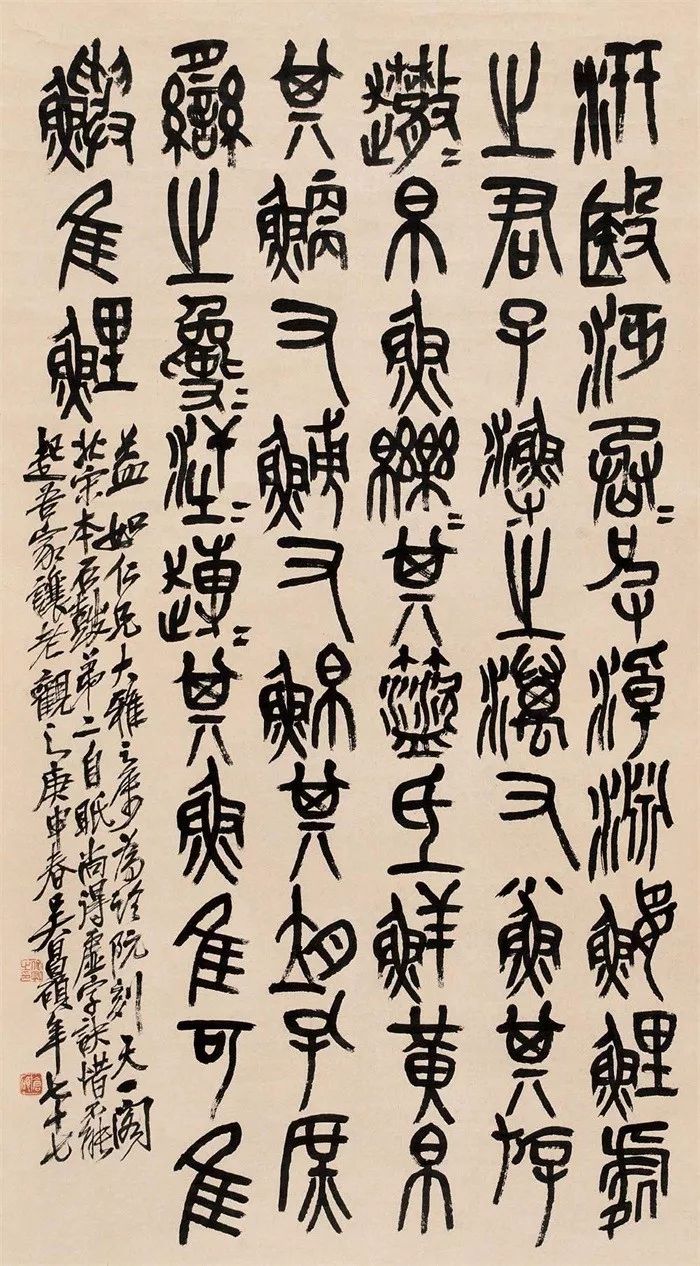 汧殹沔=丞皮淖淵鰋鯉處
之君子漁之澫又小魚其斿
趣=帛魚皪=其盜氐鮮黃帛
其鯿又鱄又鮊其胡孔庶
臠之=汗=趠=其魚隹可隹
鱮隹鯉
益如仁兄大雅之屬為臨阮刻天一閣
北宋本石鼓第二自眂尚得虛字訣惜不能
起吾家讓老觀之庚申春吳昌碩年七十七